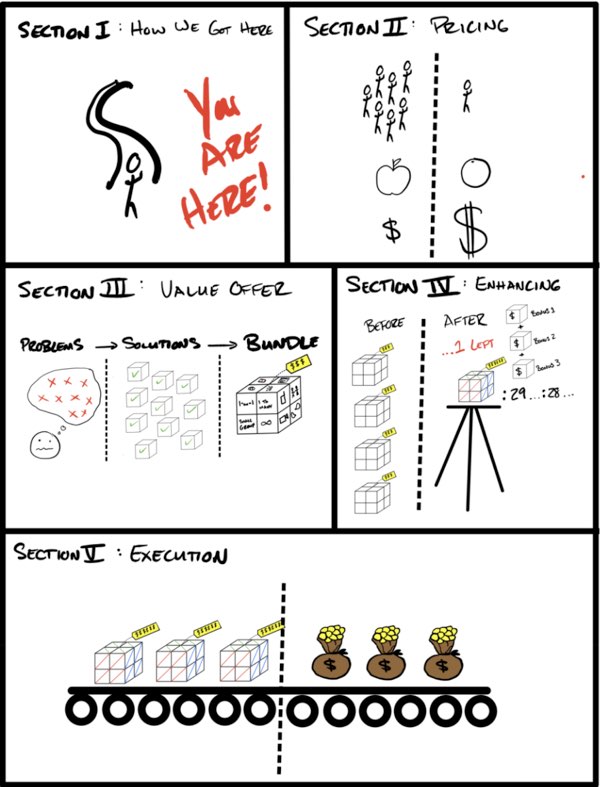 SECTION I : HOW WE GOT HERE
YOU
ARE
HERE!
SECTION II : PRICING
$ $
SECTION III : VALUE OFFER
PROBLEMS → SOLUTIONS → BUNDLE
$$$
SECTION IV : ENHANCING
BEFORE AFTER
...1 LEFT
$ BONUS 1
+
$ BONUS 2
+
$ BONUS 3
:29...:28...
SECTION V : EXECUTION
$ $ $